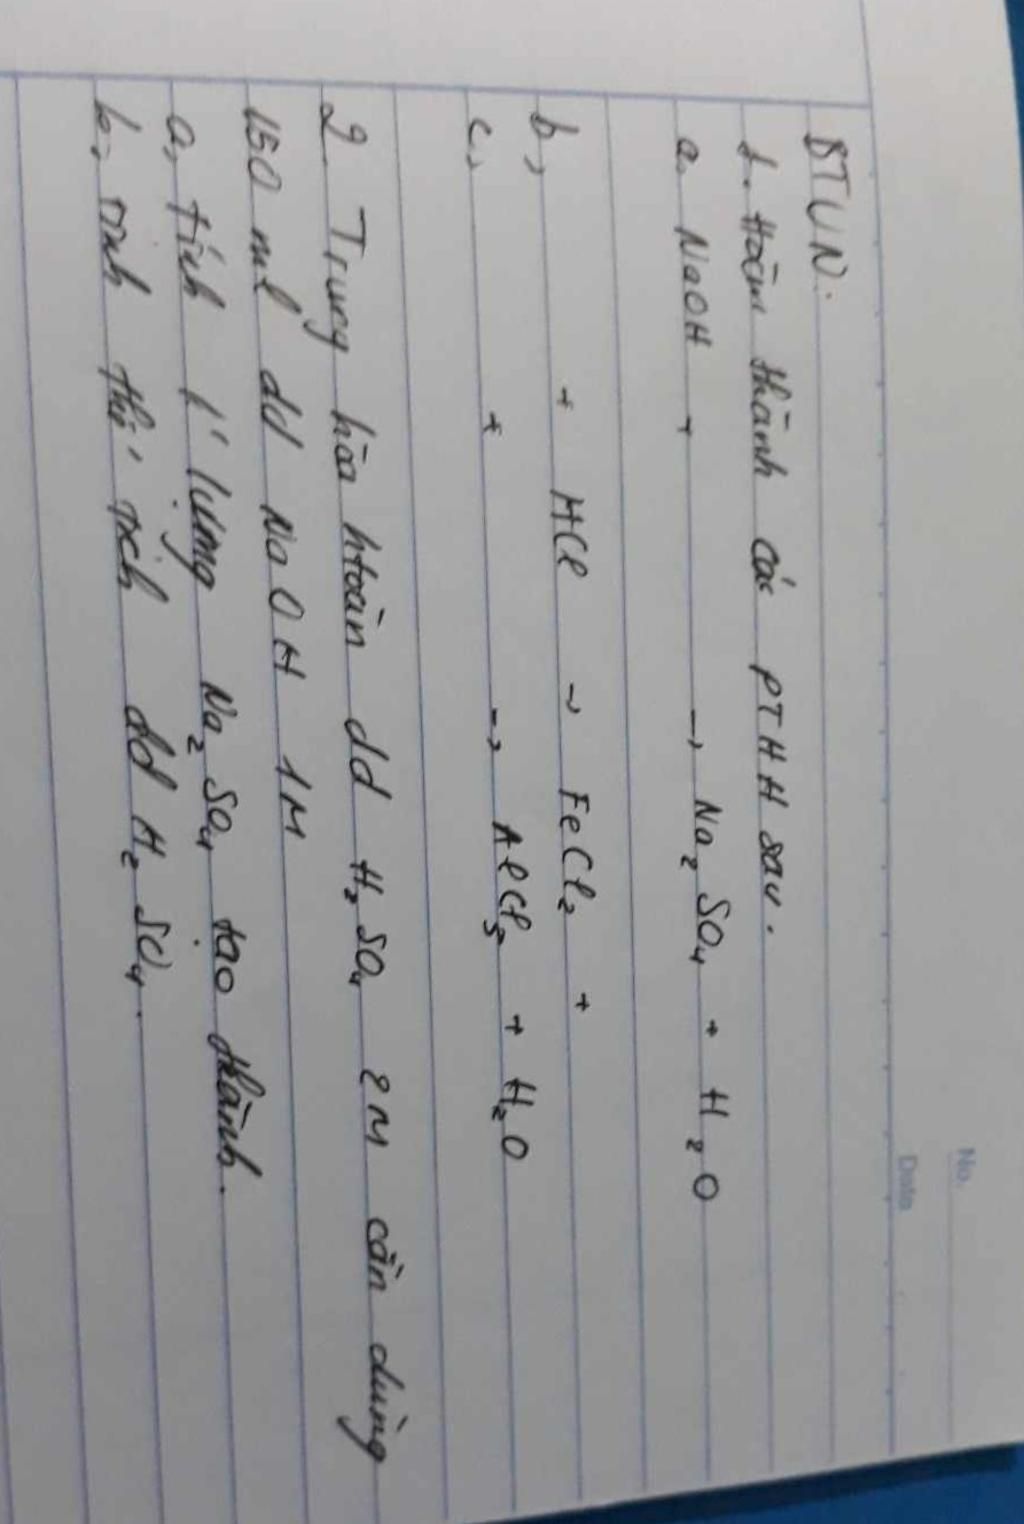 No.
Date
BTVN:
1. Hoàn thành các PTHH sau.
a. NaOH + → Na₂SO₄ + H₂O
b, + HCl → FeCl₂ +
c, + → AlCl₃ + H₂O
2. Trung hòa htoàn dd H₂SO₄ 2M cần dùng
150 ml dd NaOH 1M
a, tính k' lượng Na₂SO₄ tạo thành.
b, tính thể tích dd H₂SO₄.